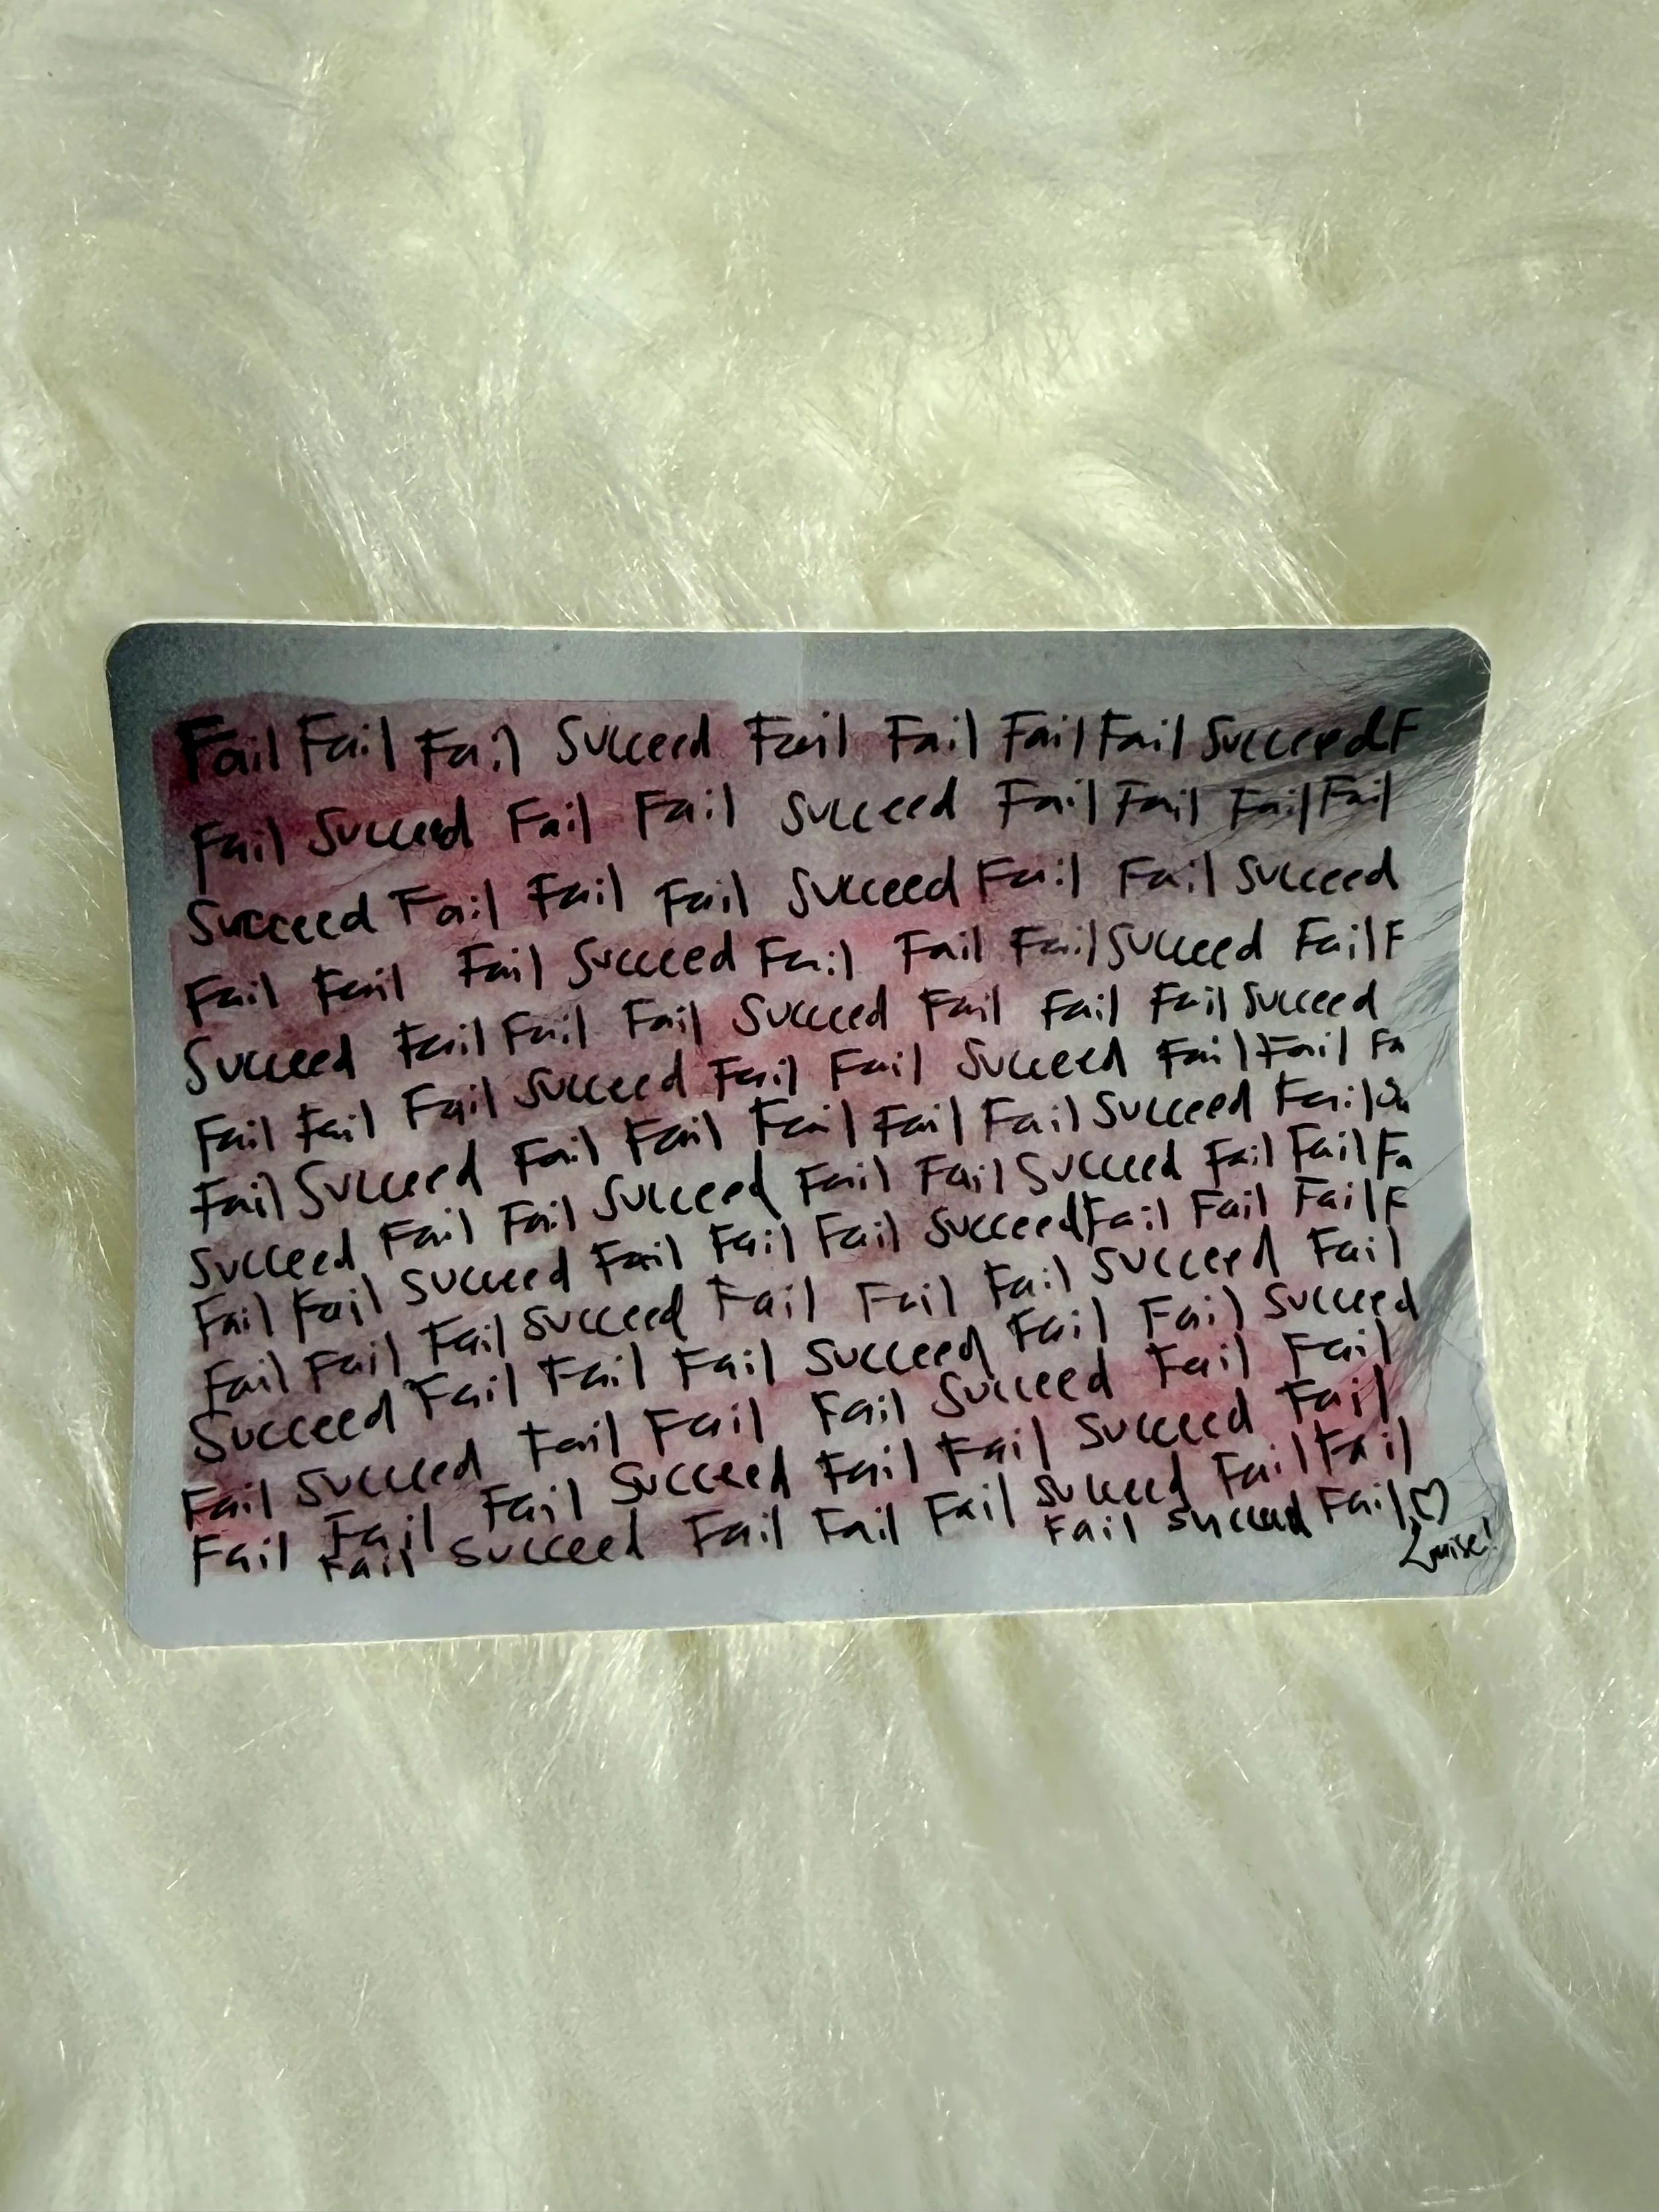 Fail Fail Fail Succeed Fail Fail Fail Fail Succeed F
Fail Succeed Fail Fail Succeed Fail Fail Fail Fail
Succeed Fail Fail Fail Succeed Fail Fail Succeed
Fail Fail Fail Succeed Fail Fail Fail Succeed Fail F
Succeed Fail Fail Fail Succeed Fail Fail Fail Succeed
Fail Fail Fail Succeed Fail Fail Succeed Fail Fail Fa
Fail Succeed Fail Fail Fail Fail Fail Succeed Fail
Succeed Fail Fail Succeed Fail Fail Succeed Fail Fail Fa
Fail Fail Succeed Fail Fail Fail Succeed Fail Fail Fail F
Fail Fail Fail Succeed Fail Fail Fail Succeed Fail
Succeed Fail Fail Fail Succeed Fail Fail Succeed
Fail Succeed Fail Fail Fail Succeed Fail Fail
Fail Fail Fail Succeed Fail Fail Succeed Fail
Fail Succeed Fail Fail Fail Succeed Fail Fail
Fail Succeed Fail ♡
Louise!